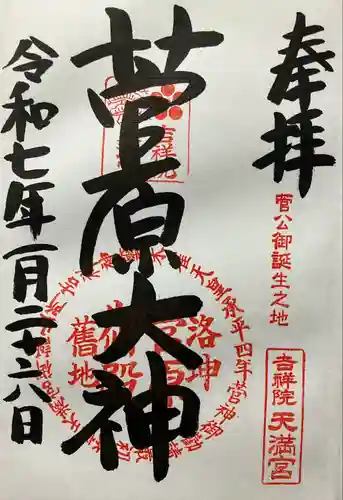 奉拝
菅公御誕生之地
吉祥院天満宮
菅原大神
吉祥院
洛坤
菅原
御殿
舊地
天皇承平四年菅神御
令和七年一月二十八日